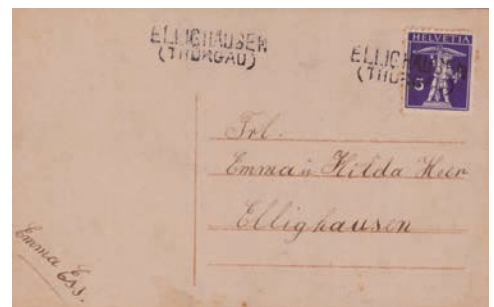 ELLIGHAUSEN
(THURGAU)
ELLIGHAUSEN
(THUR
HELVETIA
5
Frl.
Emma u Hilda Heer
Ellighausen
Emma Ess.